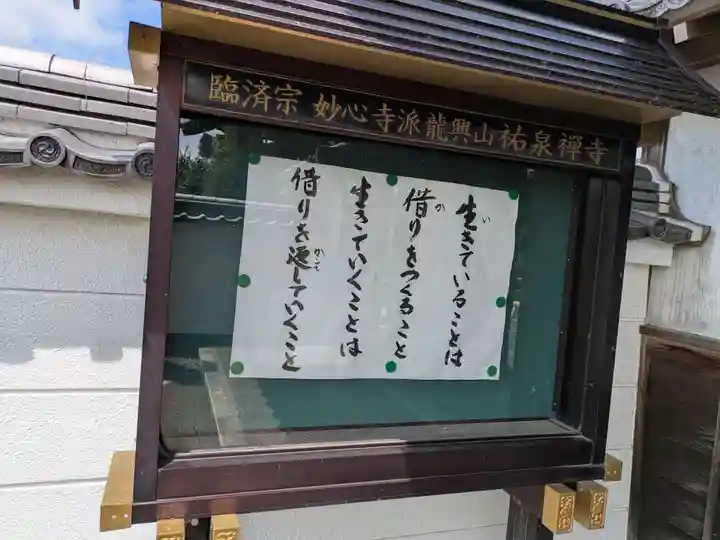 臨済宗 妙心寺派龍興山祐泉禅寺
生きていることは
借りをつくること
生きていくことは
借りを返していくこと
い
か
かえ